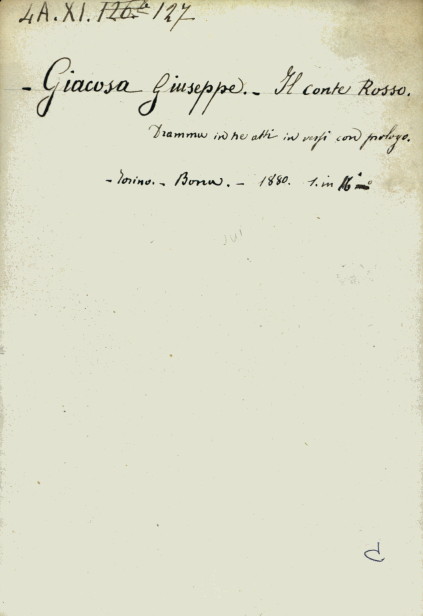 4A. XI. 126.bis 127
- Giacosa Giuseppe. - Il conte Rosso.
Dramma in tre atti in versi con prologo.
- Torino. - Bona. - 1880. 1. in 16°
C